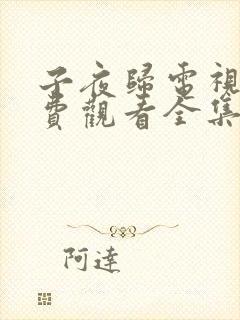 子夜歸電視
費觀看全集
阿達